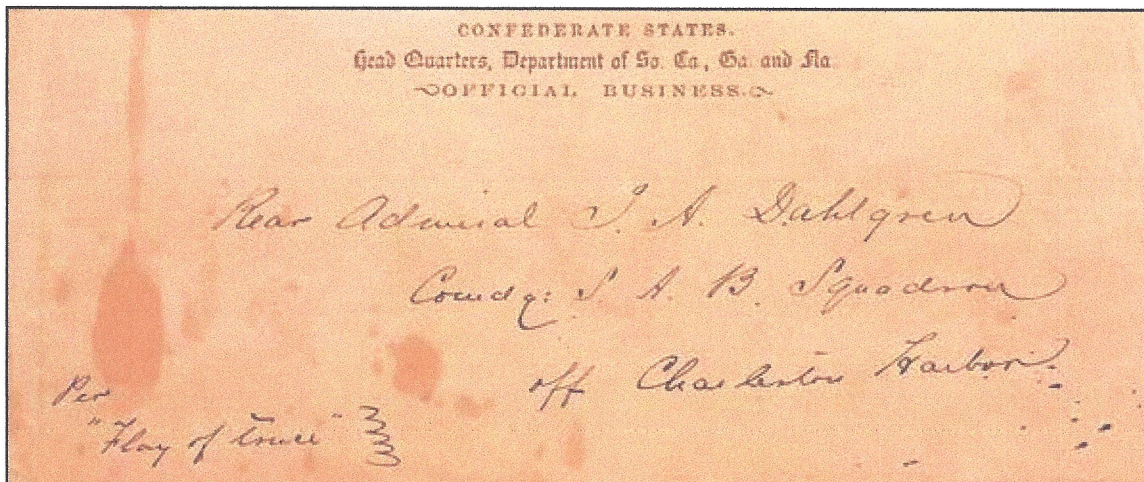 CONFEDERATE STATES.
Head Quarters, Department of So. Ca., Ga. and Fla
OFFICIAL BUSINESS.
Rear Admiral J. A. Dahlgren
Comdg: S. A. B. Squadron
off Charleston Harbor.
Per
"Flag of truce"